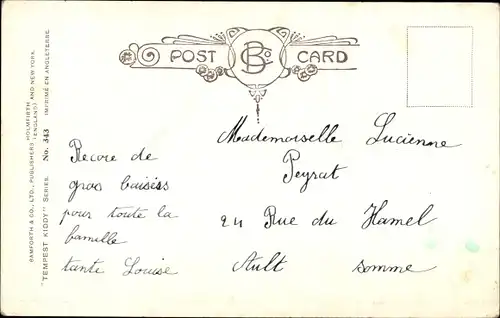 POST CARD
BCo.
BAMFORTH & CO., LTD., PUBLISHERS HOLMFIRTH (ENGLAND) AND NEW YORK.
"TEMPEST KIDDY" SERIES. No. 343 IMPRIMÉ EN ANGLETERRE.
Recore de
gros baisés
pour toute la
famille
tante Louise
Mademoiselle Lucienne
Peyrat
24 Rue du Hamel
Ault somme